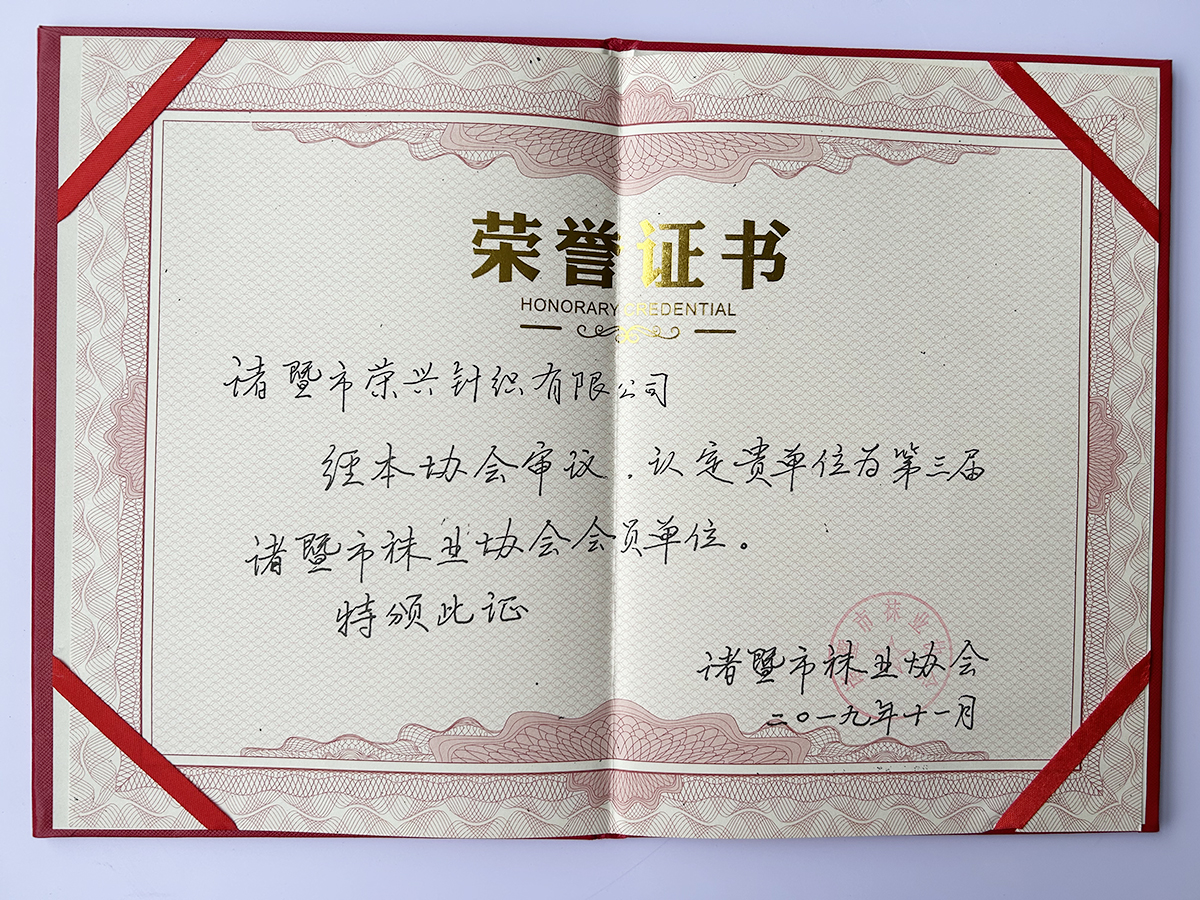 荣誉证书
HONORARY CREDENTIAL
诸暨市荣兴针织有限公司
经本协会审议，认定贵单位为第三届
诸暨市袜业协会会员单位。
特颁此证
市袜业
诸暨市袜业协会
二〇一九年十一月